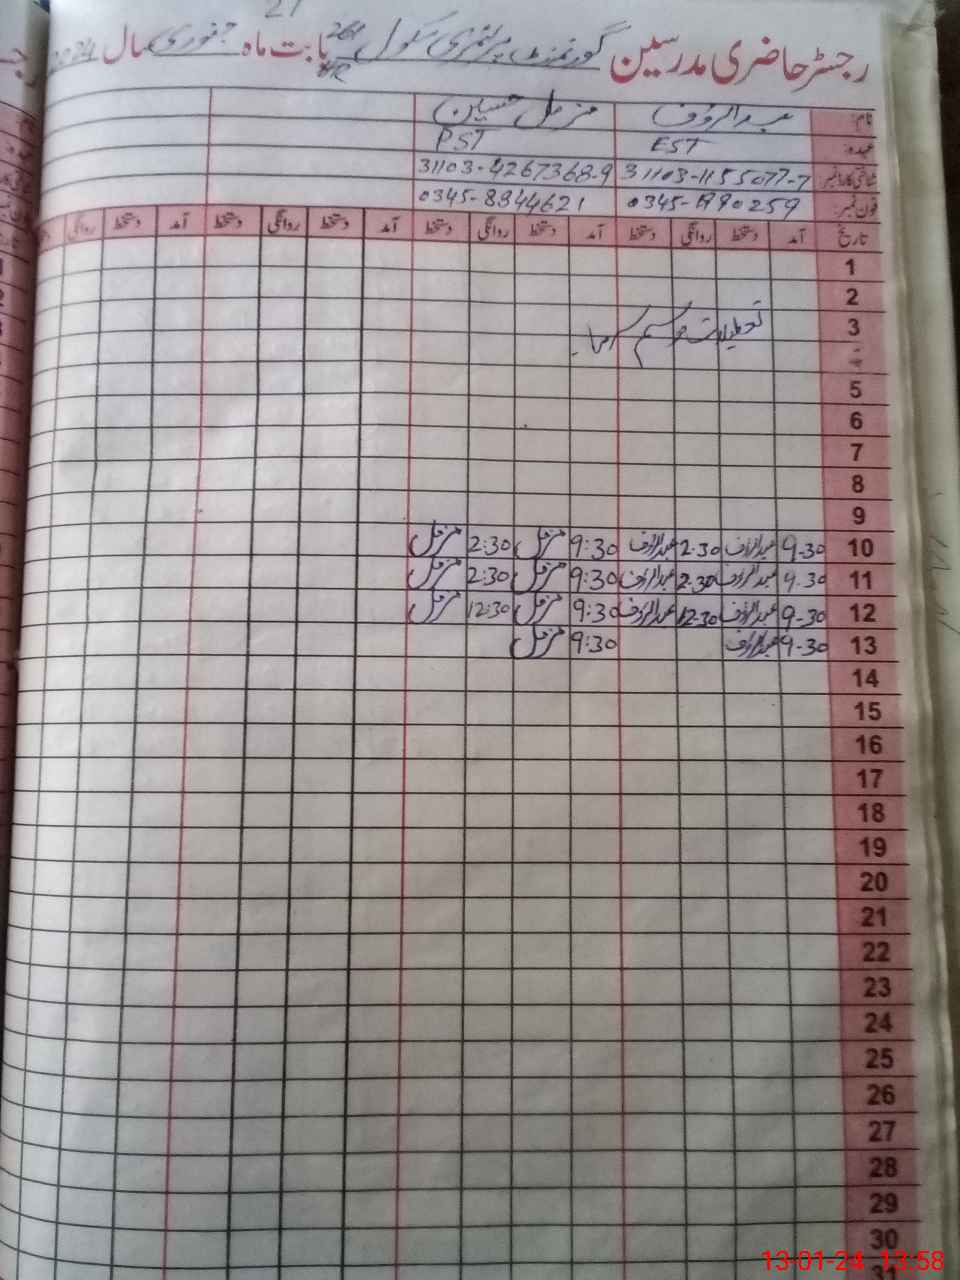 21
رجسٹر حاضری مدرسین گورنمنٹ پرائمری سکول 261 HR بابت ماہ جنوری سال 2024
نام: عبدالرؤف مزمل حسین
عہدہ: EST PST
شناختی کارڈ نمبر: 31103-1155077-7 31103-4267368-9
فون نمبر: 0345-8944621
تاریخ آمد دستخط روانگی دستخط آمد دستخط روانگی دستخط آمد دستخط روانگی دستخط آمد دستخط روانگی
1
2
3 تعطیلات موسم سرما
4
5
6
7
8
9
10 9-30 عبدالرؤف 2-30 عبدالرؤف 9:30 مزمل 2:30 مزمل
11 9-30 عبدالرؤف 2-30 عبدالرؤف 9:30 مزمل 2:30 مزمل
12 9-30 عبدالرؤف 12-30 عبدالرؤف 9:30 مزمل 12:30 مزمل
13 9-30 عبدالرؤف 9:30 مزمل
14
15
16
17
18
19
20
21
22
23
24
25
26
27
28
29
30
31
13-01-24 13:58